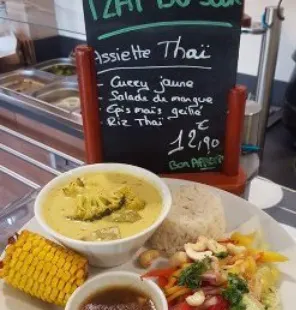 PLAT DU JOUR
Assiette Thaï
- Curry jaune
- Salade de mangue
- Epis maïs grillé
- Riz Thaï
12,90 €
BON APPÉTIT